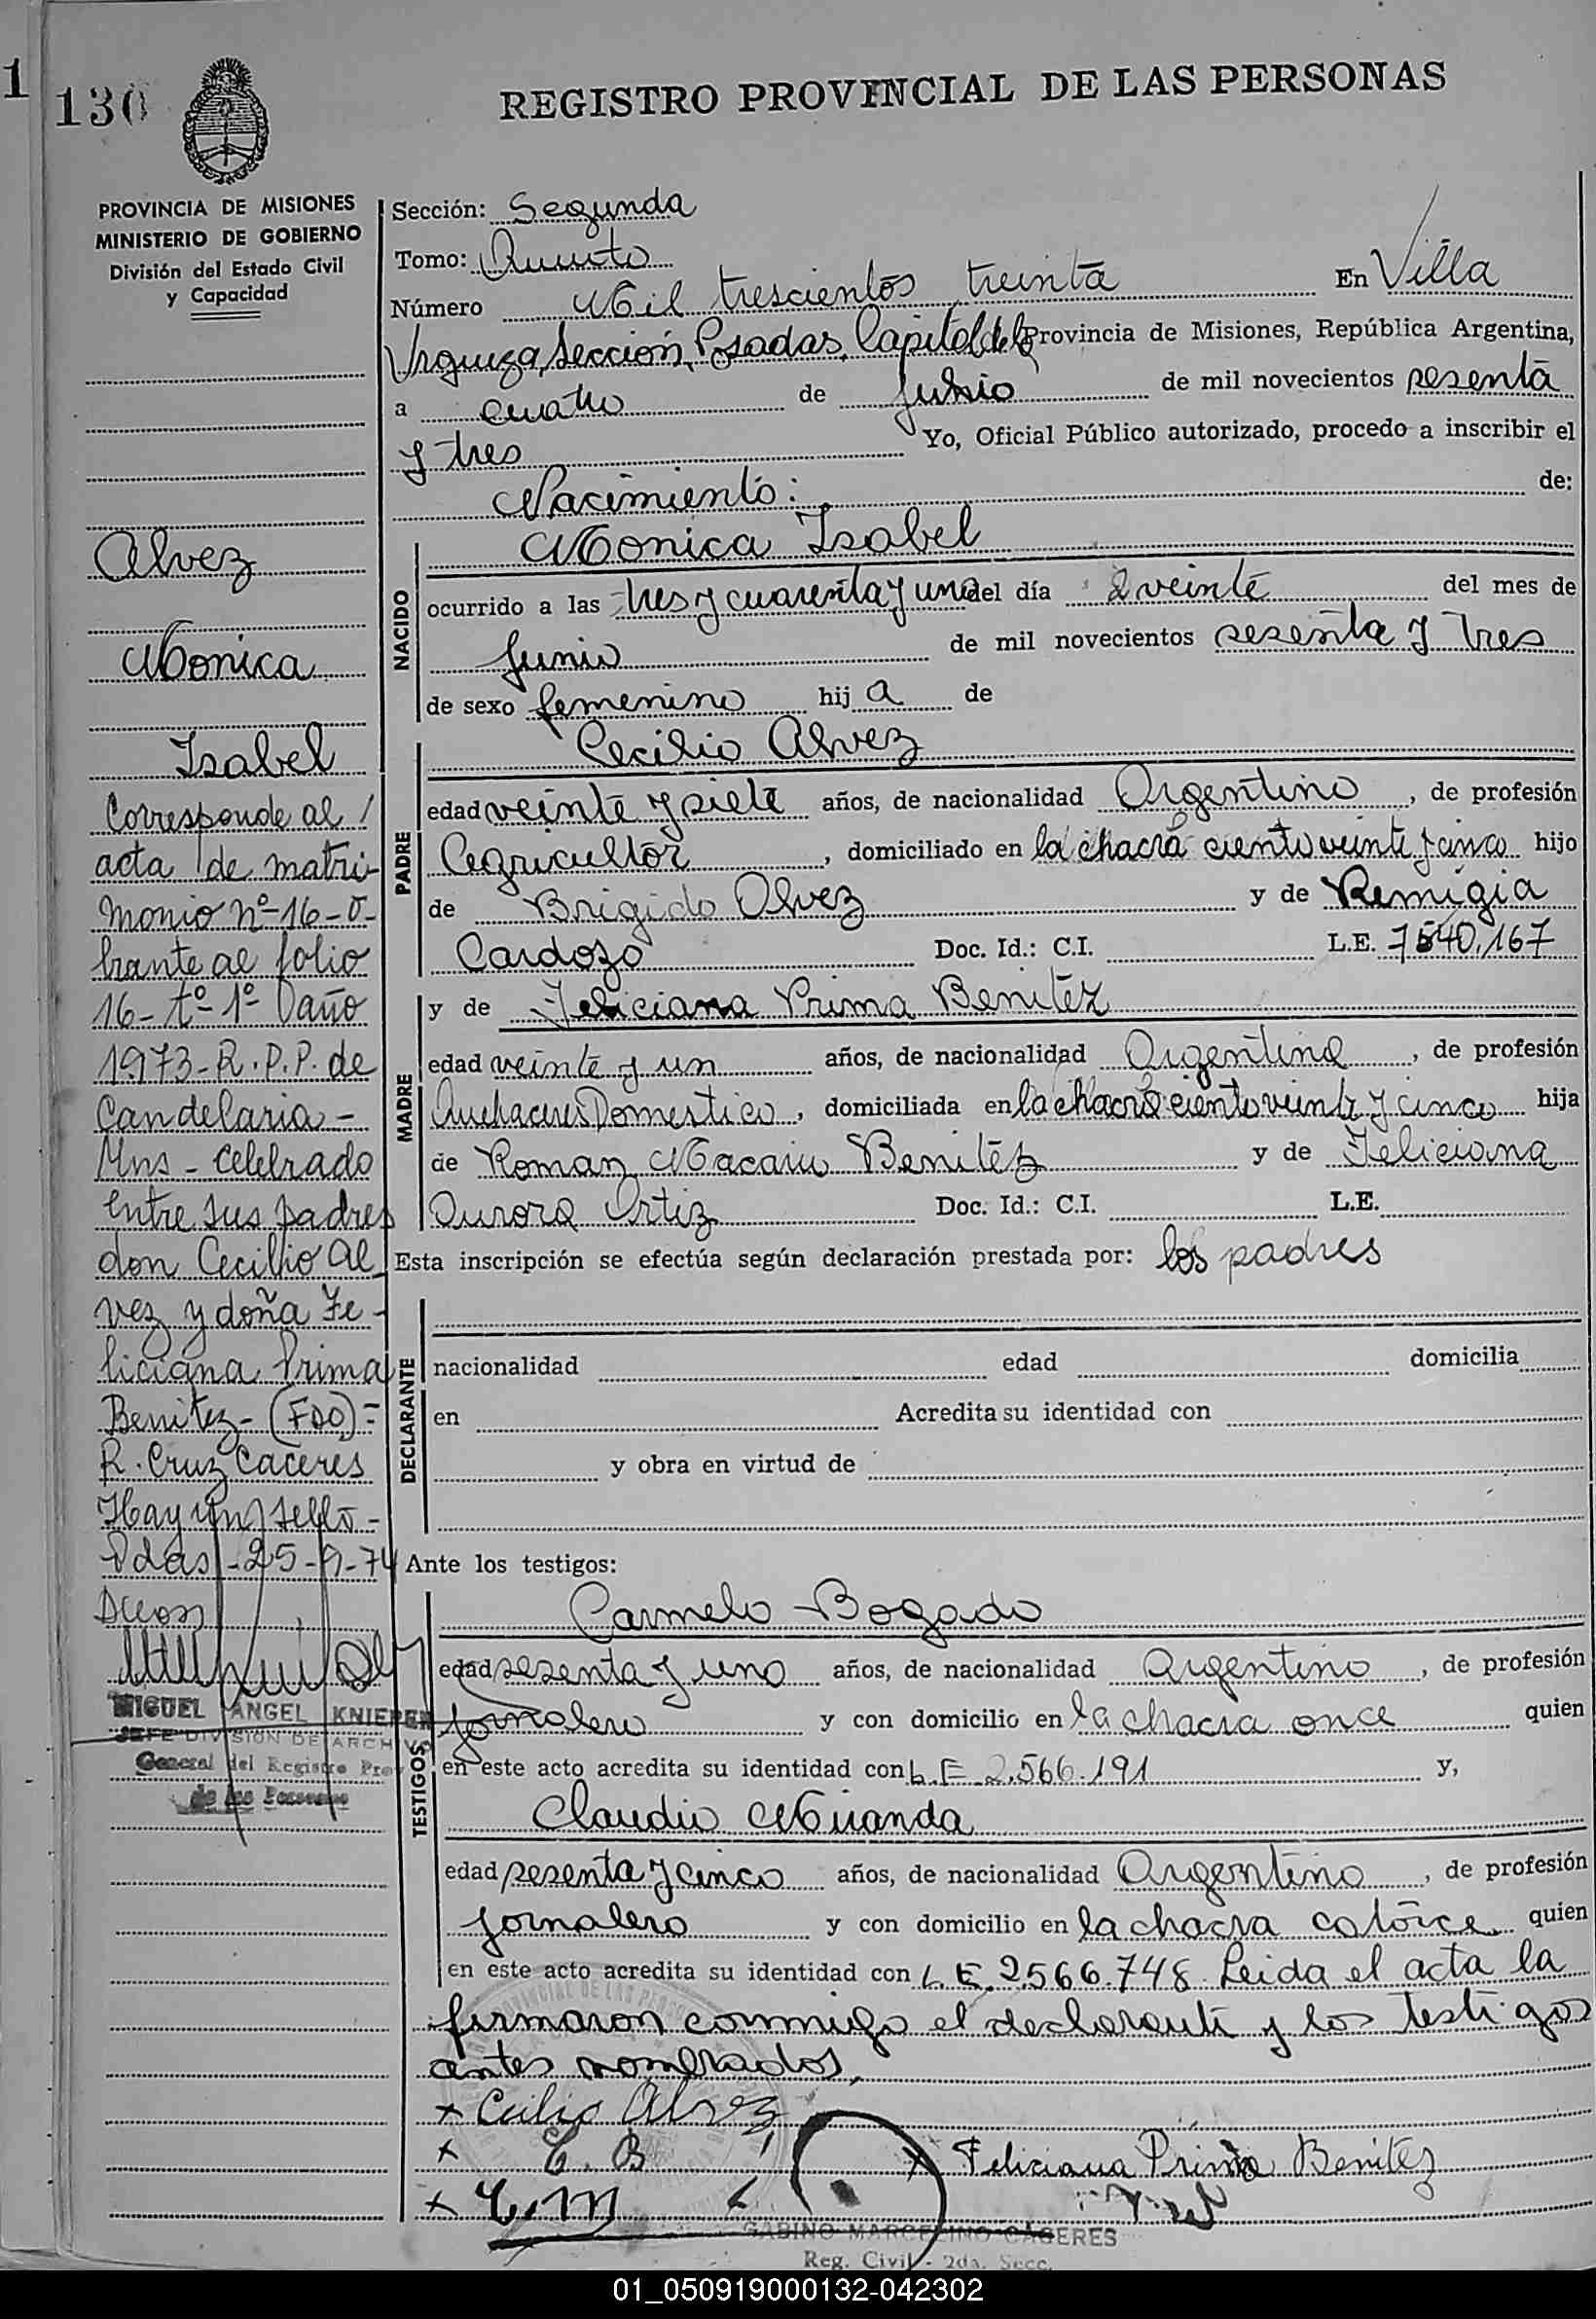 1
130
REGISTRO PROVINCIAL DE LAS PERSONAS
PROVINCIA DE MISIONES
MINISTERIO DE GOBIERNO
División del Estado Civil
y Capacidad
Sección: Segunda
Tomo: Quinto
Número Mil trescientos treinta En Villa
Urquiza, Sección, Posadas, Capital de la Provincia de Misiones, República Argentina,
a cuatro de Julio de mil novecientos sesenta
y tres Yo, Oficial Público autorizado, procedo a inscribir el
Nacimiento: de:
NACIDO
Monica Isabel
ocurrido a las tres y cuarenta y una del día veinte del mes de
Junio de mil novecientos sesenta y tres
de sexo femenino hij a de
PADRE
Cecilio Alvez
edad veinte y siete años, de nacionalidad Argentino, de profesión
Agricultor, domiciliado en la chacra ciento veinte y cinco hijo
de Brigido Alvez y de Remigia
Cardozo Doc. Id.: C.I. L.E. 7540.167
MADRE
y de Feliciana Prima Benitez
edad veinte y un años, de nacionalidad Argentina, de profesión
Quehaceres Domestico, domiciliada en la chacra ciento veinte y cinco hija
de Roman Macario Benitez y de Feliciana
Aurora Ortiz Doc. Id.: C.I. L.E.
Esta inscripción se efectúa según declaración prestada por: los padres
DECLARANTE
nacionalidad edad domicilia
en Acredita su identidad con
y obra en virtud de
Ante los testigos:
TESTIGOS
Carmelo Bogado
edad sesenta y uno años, de nacionalidad Argentino, de profesión
Jornalero y con domicilio en la chacra once quien
en este acto acredita su identidad con L.E. 2.566.191 y,
Claudio Miranda
edad sesenta y cinco años, de nacionalidad Argentino, de profesión
Jornalero y con domicilio en la chacra catorce quien
en este acto acredita su identidad con L.E. 2.566.748. Leida el acta la
firmaron conmigo el declarante y los testigos
antes nombrados,
x Cecilio Alvez
x C. B x Feliciana Prima Benitez
x C. M
GABINO MARCELINO CACERES
Reg. Civil - 2da. Secc.
Alvez
Monica
Isabel
Corresponde al
acta de matri-
monio nº-16-o-
brante al folio
16- tº-1º año
1973-R.P.P. de
Candelaria-
Mns- celebrado
entre sus padres
don Cecilio Al
vez y doña Fe-
liciana Prima
Benitez-(FDO)=
R. Cruz Caceres
Hay un sello-
Pdas-25-9-74
MIGUEL ANGEL KNIEPER
JEFE DIVISION DE ARCHIVO
General del Registro Pro
de las Personas
01_050919000132-042302